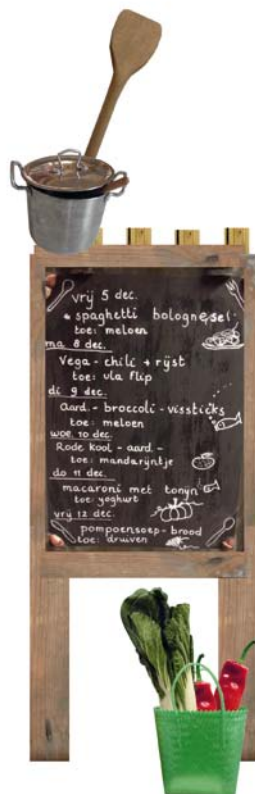 vrij 5 dec.
spaghetti bolognese
toe: meloen
ma 8 dec.
Vega-chili + rijst
toe: vla flip
di 9 dec.
Aard.-broccoli-vissticks
toe: meloen
woe. 10 dec.
Rode kool - aard.-
toe: mandarijntje
do 11 dec.
macaroni met tonijn
toe: yoghurt
vrij 12 dec.
pompoensoep-brood
toe: druiven